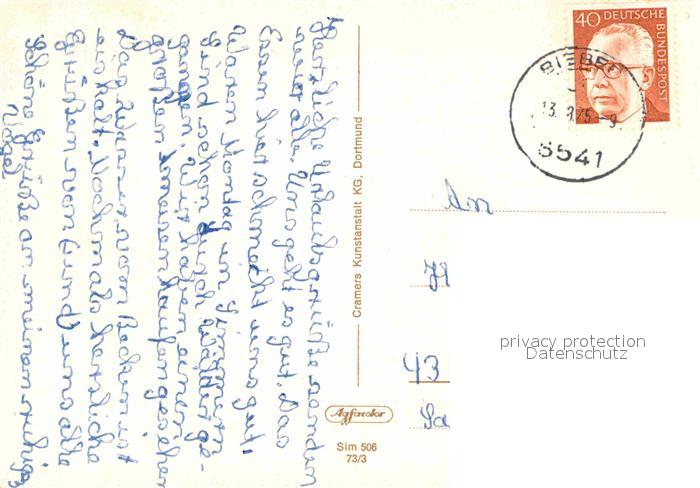 Herzliche Urlaubsgrüße senden
wir alle. Uns geht es gut. Das
Essen hier schmeckt uns gut.
Waren Montag in Simmern
sind schon durch Wälder ge-
gangen. Wir haben einen
großen Ameisenhaufen gesehen
Das Wasser vom Becken ist
eiskalt. Nochmals herzliche
Grüße von Euch uns alle
Schöne Grüße an meinen
Vogel
Cramers Kunstanstalt KG, Dortmund
Agfacolor
Sim 506
73/3
40 DEUTSCHE
BUNDESPOST
BIEBER
6541
An
43
privacy protection
Datenschutz